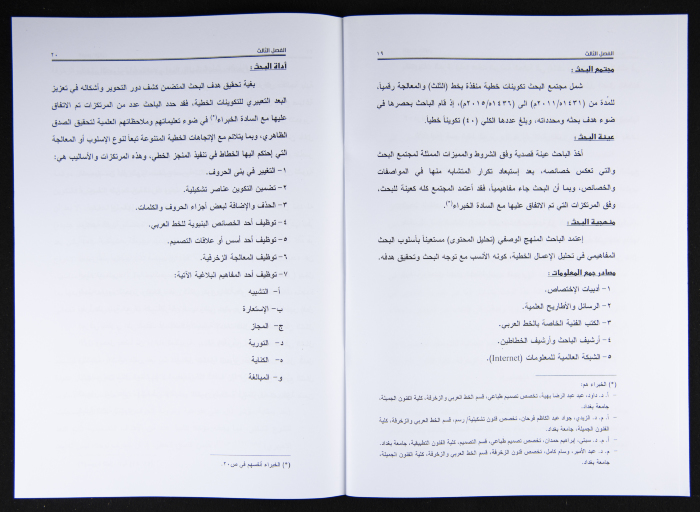 الفصل الثالث
١٩
مجتمع البحث :
شمل مجتمع البحث تكوينات خطية منفذة بخط (الثلث) والمعالجة رقمياً،
للمدة من (١٤٣١هـ/٢٠١١م) الى (١٤٣٦هـ/٢٠١٥م)، إذ قام الباحث بحصرها في
ضوء هدف بحثه ومحدداته، وبلغ عددها الكلي (٤٠) تكويناً خطياً.
عينة البحث :
أخذ الباحث عينة قصدية وفق الشروط والمميزات الممثلة لمجتمع البحث
والتي تعكس خصائصه، بعد إستبعاد تكرار المتشابه منها في المواصفات
والخصائص، وبما أن البحث جاء مفاهيمياً، فقد أعتمد المجتمع كله كعينة للبحث،
وفق المرتكزات التي تم الاتفاق عليها مع السادة الخبراء(*).
منهجية البحث :
إعتمد الباحث المنهج الوصفي (تحليل المحتوى) مستعيناً بأسلوب البحث
المفاهيمي في تحليل الإعمال الخطية، كونه الأنسب مع توجه البحث وتحقيق هدفه.
مصادر جمع المعلومات :
١- أدبيات الإختصاص.
٢- الرسائل والأطاريح العلمية.
٣- الكتب الفنية الخاصة بالخط العربي.
٤- أرشيف الباحث وأرشيف الخطاطين.
٥- الشبكة العالمية للمعلومات (Internet).
(*) الخبراء هم:
- أ. د. داود، عبد عبد الرضا بهية، تخصص تصميم طباعي، قسم الخط العربي والزخرفة، كلية الفنون الجميلة،
جامعة بغداد.
- أ. م. د. الزيدي، جواد عبد الكاظم فرحان، تخصص فنون تشكيلية/ رسم، قسم الخط العربي والزخرفة، كلية
الفنون الجميلة، جامعة بغداد.
- أ. م. د. سبتي، إبراهيم حمدان، تخصص تصميم طباعي، قسم التصميم، كلية الفنون التطبيقية، جامعة بغداد.
- م. د. عبد الأمير، وسام كامل، تخصص فنون الزخرفة، قسم الخط العربي والزخرفة، كلية الفنون الجميلة،
جامعة بغداد.
الفصل الثالث
٢٠
أداة البحث :
بغية تحقيق هدف البحث المتضمن كشف دور التحوير وأشكاله في تعزيز
البعد التعبيري للتكوينات الخطية، فقد حدد الباحث عدد من المرتكزات تم الاتفاق
عليها مع السادة الخبراء(*) في ضوء تعليماتهم وملاحظاتهم العلمية لتحقيق الصدق
الظاهري، وبما يتلائم مع الإتجاهات الخطية المتنوعة تبعاً لنوع الإسلوب أو المعالجة
التي إحتكم اليها الخطاط في تنفيذ المنجز الخطي، وهذه المرتكزات والأساليب هي:
١- التغيير في بنى الحروف.
٢- تضمين التكوين عناصر تشكيلية.
٣- الحذف والإضافة لبعض أجزاء الحروف والكلمات.
٤- توظيف أحد الخصائص البنيوية للخط العربي.
٥- توظيف أحد أسس أو علاقات التصميم.
٦- توظيف المعالجة الزخرفية.
٧- توظيف أحد المفاهيم البلاغية الآتية:
أ- التشبيه
ب- الإستعارة
ج- المجاز
د- التورية
ه- الكناية
و- المبالغة
(*) الخبراء أنفسهم في ص٢٠.